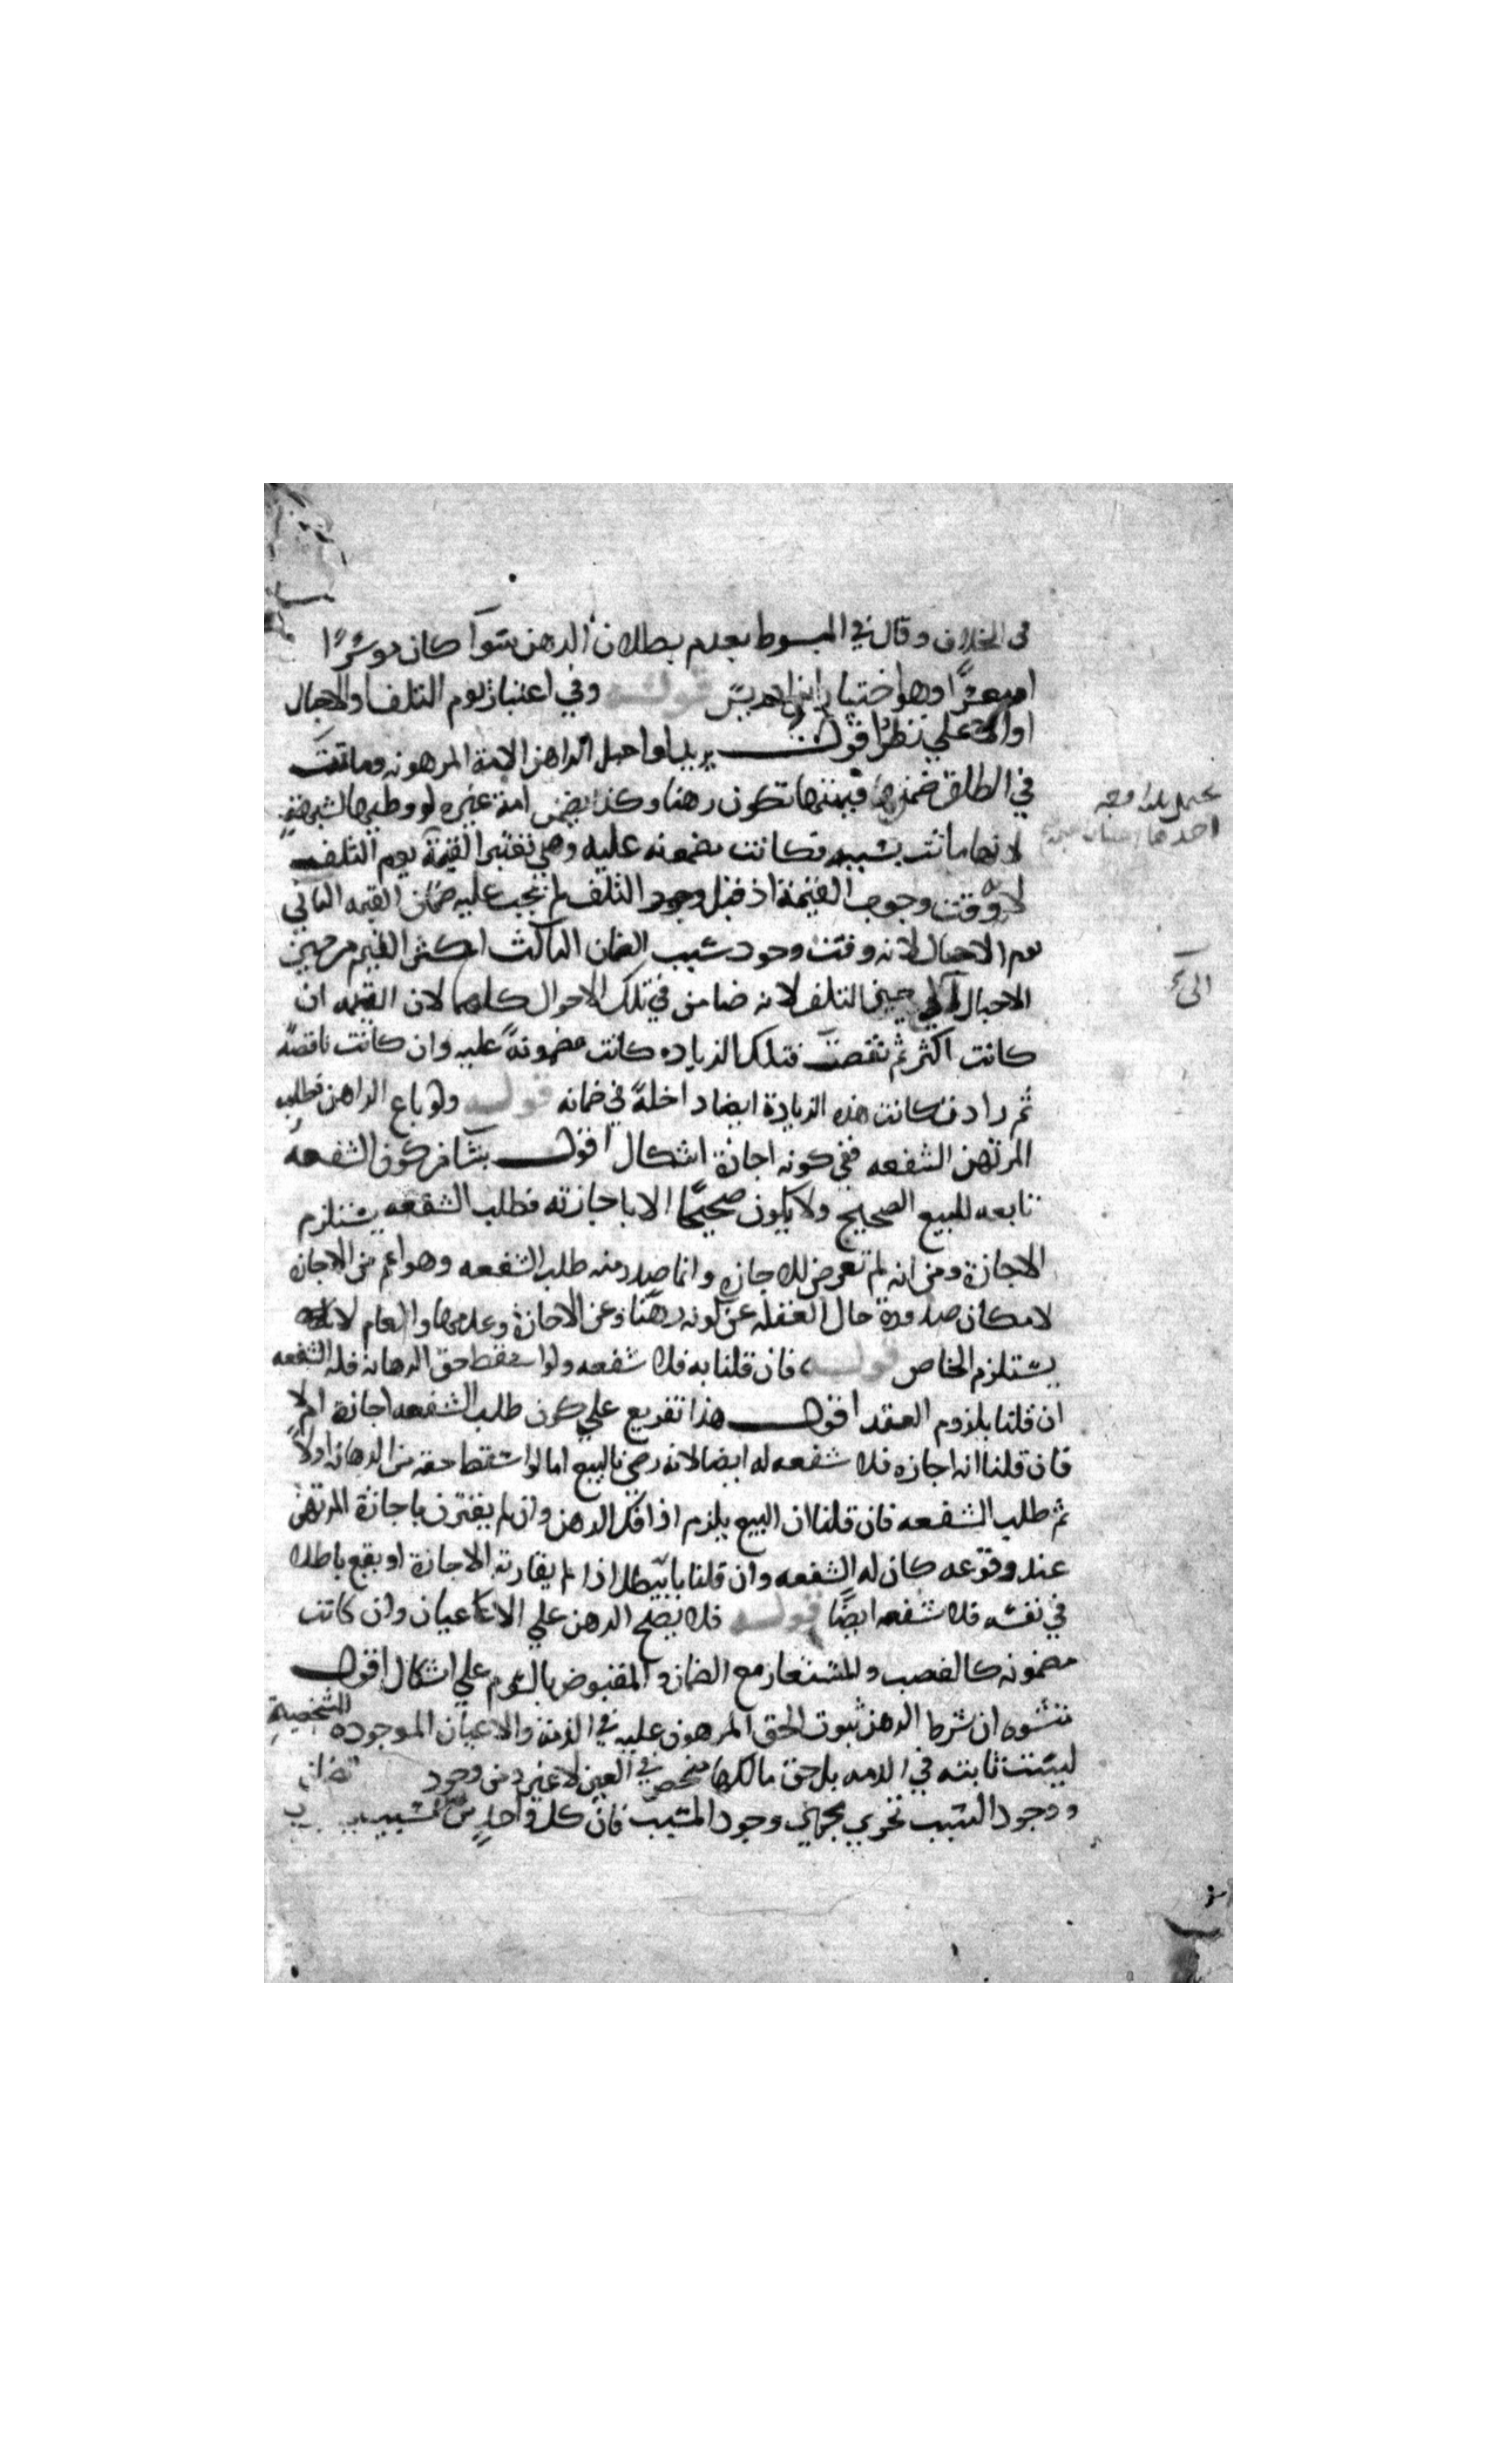 في الخلاف وقال في المبسوط بعدم بطلان الرهن سوآ كان موسرًا
ام معسرًا وهو اختيار ابن ادريس قوله وفي اعتبار يوم التلف او الاحبال
او الاعلي نظر اقول يريد لو احبل الراهن الامة المرهونه وماتت
في الطلق ضمن قيمتها تكون رهنا وكذا يضمن امة غيره لو وطيها لشبهة
لانها ماتت بسببه فكانت مضمونه عليه وهل تعتبر القيمة يوم التلف
لانه وقت وجوب القيمة اذ قبل وجود التلف لم تجب عليه ضمان القيمه الثاني
يوم الاحبال لانه وقت وجود سبب الضمان الثالث اكثر القيم من حين
الاحبال الي حين التلف لانه ضامن في تلك الاحوال كلها لان القيمه ان
كانت اكثر ثم نقصت فتلك الزياده كانت مضمونةً عليه وان كانت ناقصةً
ثم زادت كانت هذه الزيادة ايضا داخلةً في ضمانه قوله ولو باع الراهن فطلب
المرتهن الشفعه ففي كونه اجازة اشكال اقول ينشا من كون الشفعه
تابعه للبيع الصحيح ولا يكون صحيحًا الا باجازته فطلب الشفعه يستلزم
الاجازة ومن انه لم تعرض للاجازه وانما صدر منه طلب الشفعه وهو اعم من الاجازه
لامكان صدوره حال الغفله عن كونه رهنًا وعن الاجازة وعدمها والعام لا
يستلزم الخاص قوله فان قلنا به فلا شفعه ولو اسقط حق الرهانه فله الشفعه
ان قلنا بلزوم العقد اقول هذا تفريع علي كون طلب الشفعه اجازة ام لا
فان قلنا انه اجازه فلا شفعه له ايضا لانه رضي بالبيع اما لو اسقط حقه من الرهانه اولاً
ثم طلب الشفعه فان قلنا ان البيع يلزم اذا فك الرهن وان لم يقترن باجازة المرتهن
عند وقوعه كان له الشفعه وان قلنا بانه يبطل اذا لم يقارنه الاجازة او يقع باطلا
في نفسه فلا شفعه ايضًا قوله فلا يصح الرهن علي الاعيان وان كانت
مضمونه كالغصب والمستعار مع الضمان والمقبوض بالسوم علي اشكال اقول
منشوه ان شرط الرهن ثبوت الحق المرهون عليه في الذمة والاعيان الموجوده الشخصية
ليست ثابته في الذمه بل حق مالكها منحصر في العين لا غير ومن وجود
ووجود السبب تجري مجري وجود المسبب فان كل واحد من
يحتمل
احدها
الي